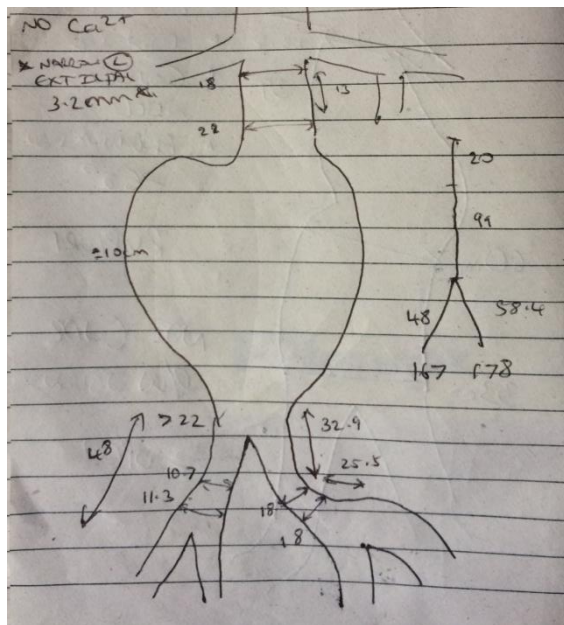 NO Ca2+
* NARROW Ⓛ
EXT ILIAC
3.2mm
18
13
22
20
≈10cm
99
48
58.4
167
178
> 22
32.9
48
10.7
25.5
11.3
18
18